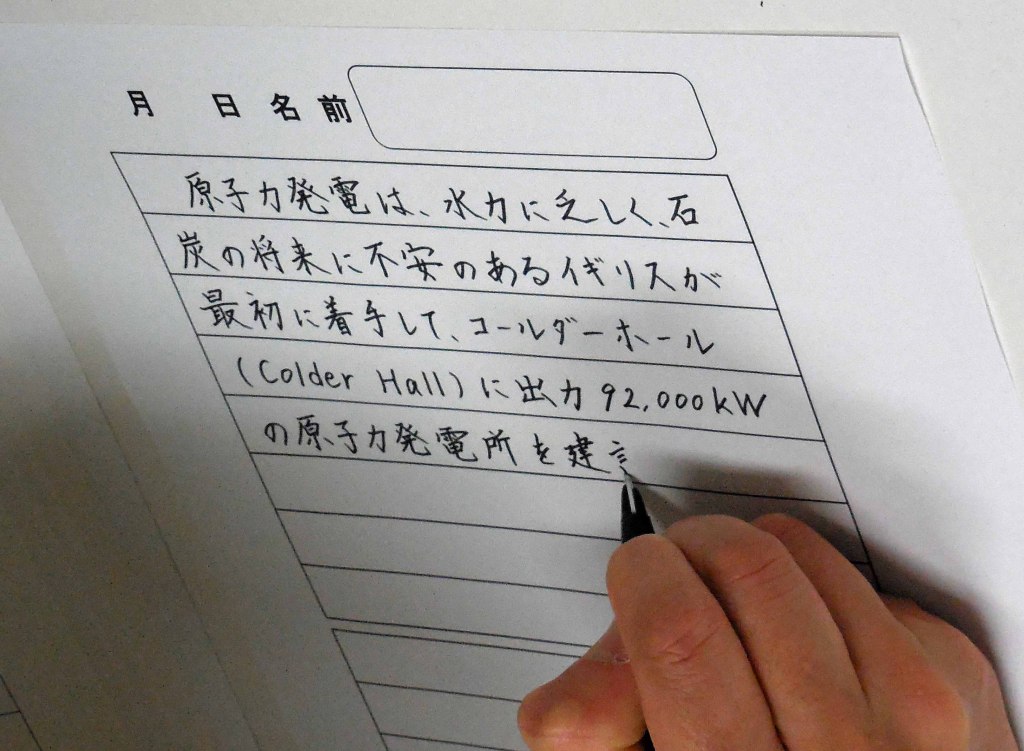 月 日 名前
原子力発電は、水力に乏しく、石
炭の将来に不安のあるイギリスが
最初に着手して、コールダーホール
(Colder Hall)に出力92,000kW
の原子力発電所を建